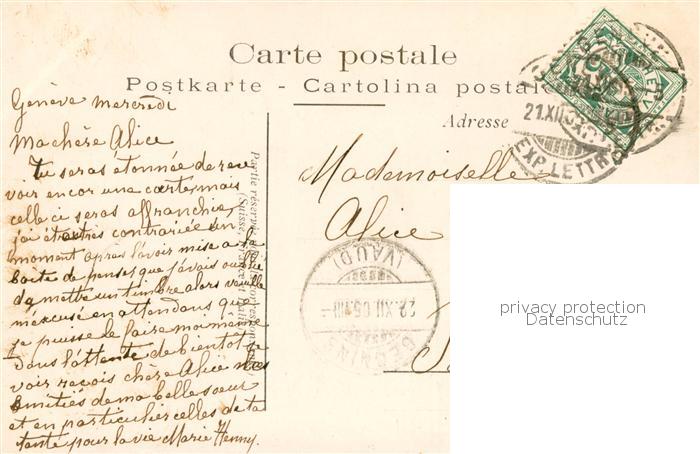 Carte postale
Postkarte - Cartolina postale
Genève mercredi
Ma chère Alice
Tu seras étonnée de rece
voir encor une carte, mais
celle ci seras affranchie,
j'ai été très contrariée un
moment après l'avoir mise a la
boîte de penser que j'avais oublié
de mettre un timbre alors veuille
m'excusé en attendans que
je puisse le faire moi même
dans l'attente de bientôt te
voir reçois chère Alice
amitiés de ma belle soeur
et en particulier celles de ta
tante pour la vie Marie Henny.
Adresse
Mademoiselle
Alice
21.XII
EXP. LETTR
(VAUD)
22.XII.05.VIII-
BEGNINS
privacy protection
Datenschutz